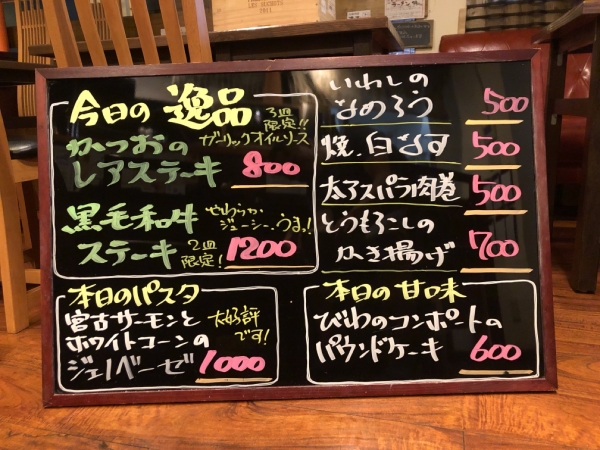 今日の 逸品
3皿
限定!!
かつおの
レアステーキ
ガーリックオイルソース
800
黒毛和牛
ステーキ
やわらか
ジューシー、うまっ!
2皿
限定!
1200
いわしの
なめろう 500
焼、白なす 500
太アスパラ肉巻 500
とうもろこしの
かき揚げ 700
本日のパスタ
宮古サーモンと
ホワイトコーンの
ジェノベーゼ 1000
大好評
です!
本日の甘味
びわのコンポートの
パウンドケーキ 600